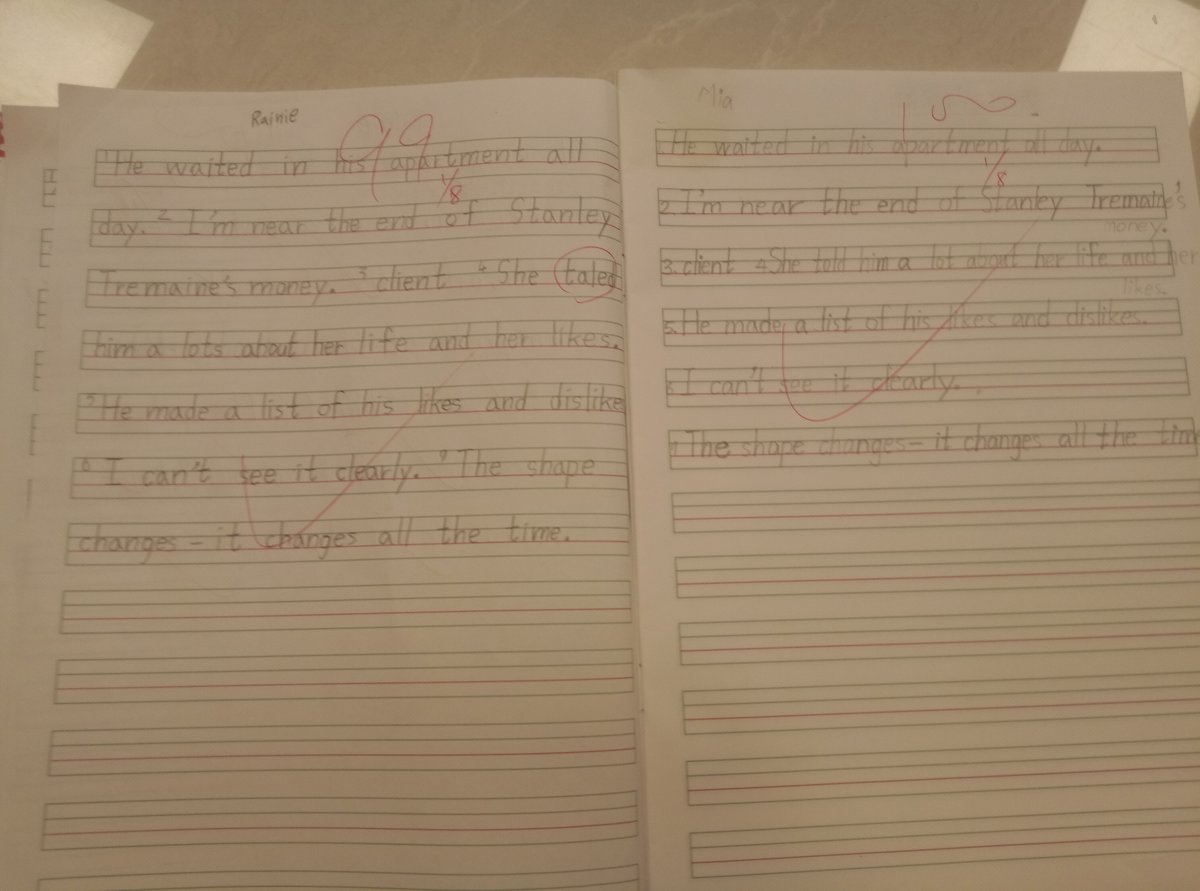 Rainie
99
1/8
1 He waited in his apartment all
day. 2 I'm near the end of Stanley
Tremaine's money. 3 client 4 She taled
him a lots about her life and her likes.
5 He made a list of his likes and dislike
6 I can't see it clearly. 7 The shape
changes - it changes all the time.
Mia
1/8
1. He waited in his apartment all day.
2. I'm near the end of Stanley Tremaine's
money.
3. client 4 She told him a lot about her life and her
likes.
5. He made a list of his likes and dislikes.
6 I can't see it clearly.
7 The shape changes - it changes all the tim